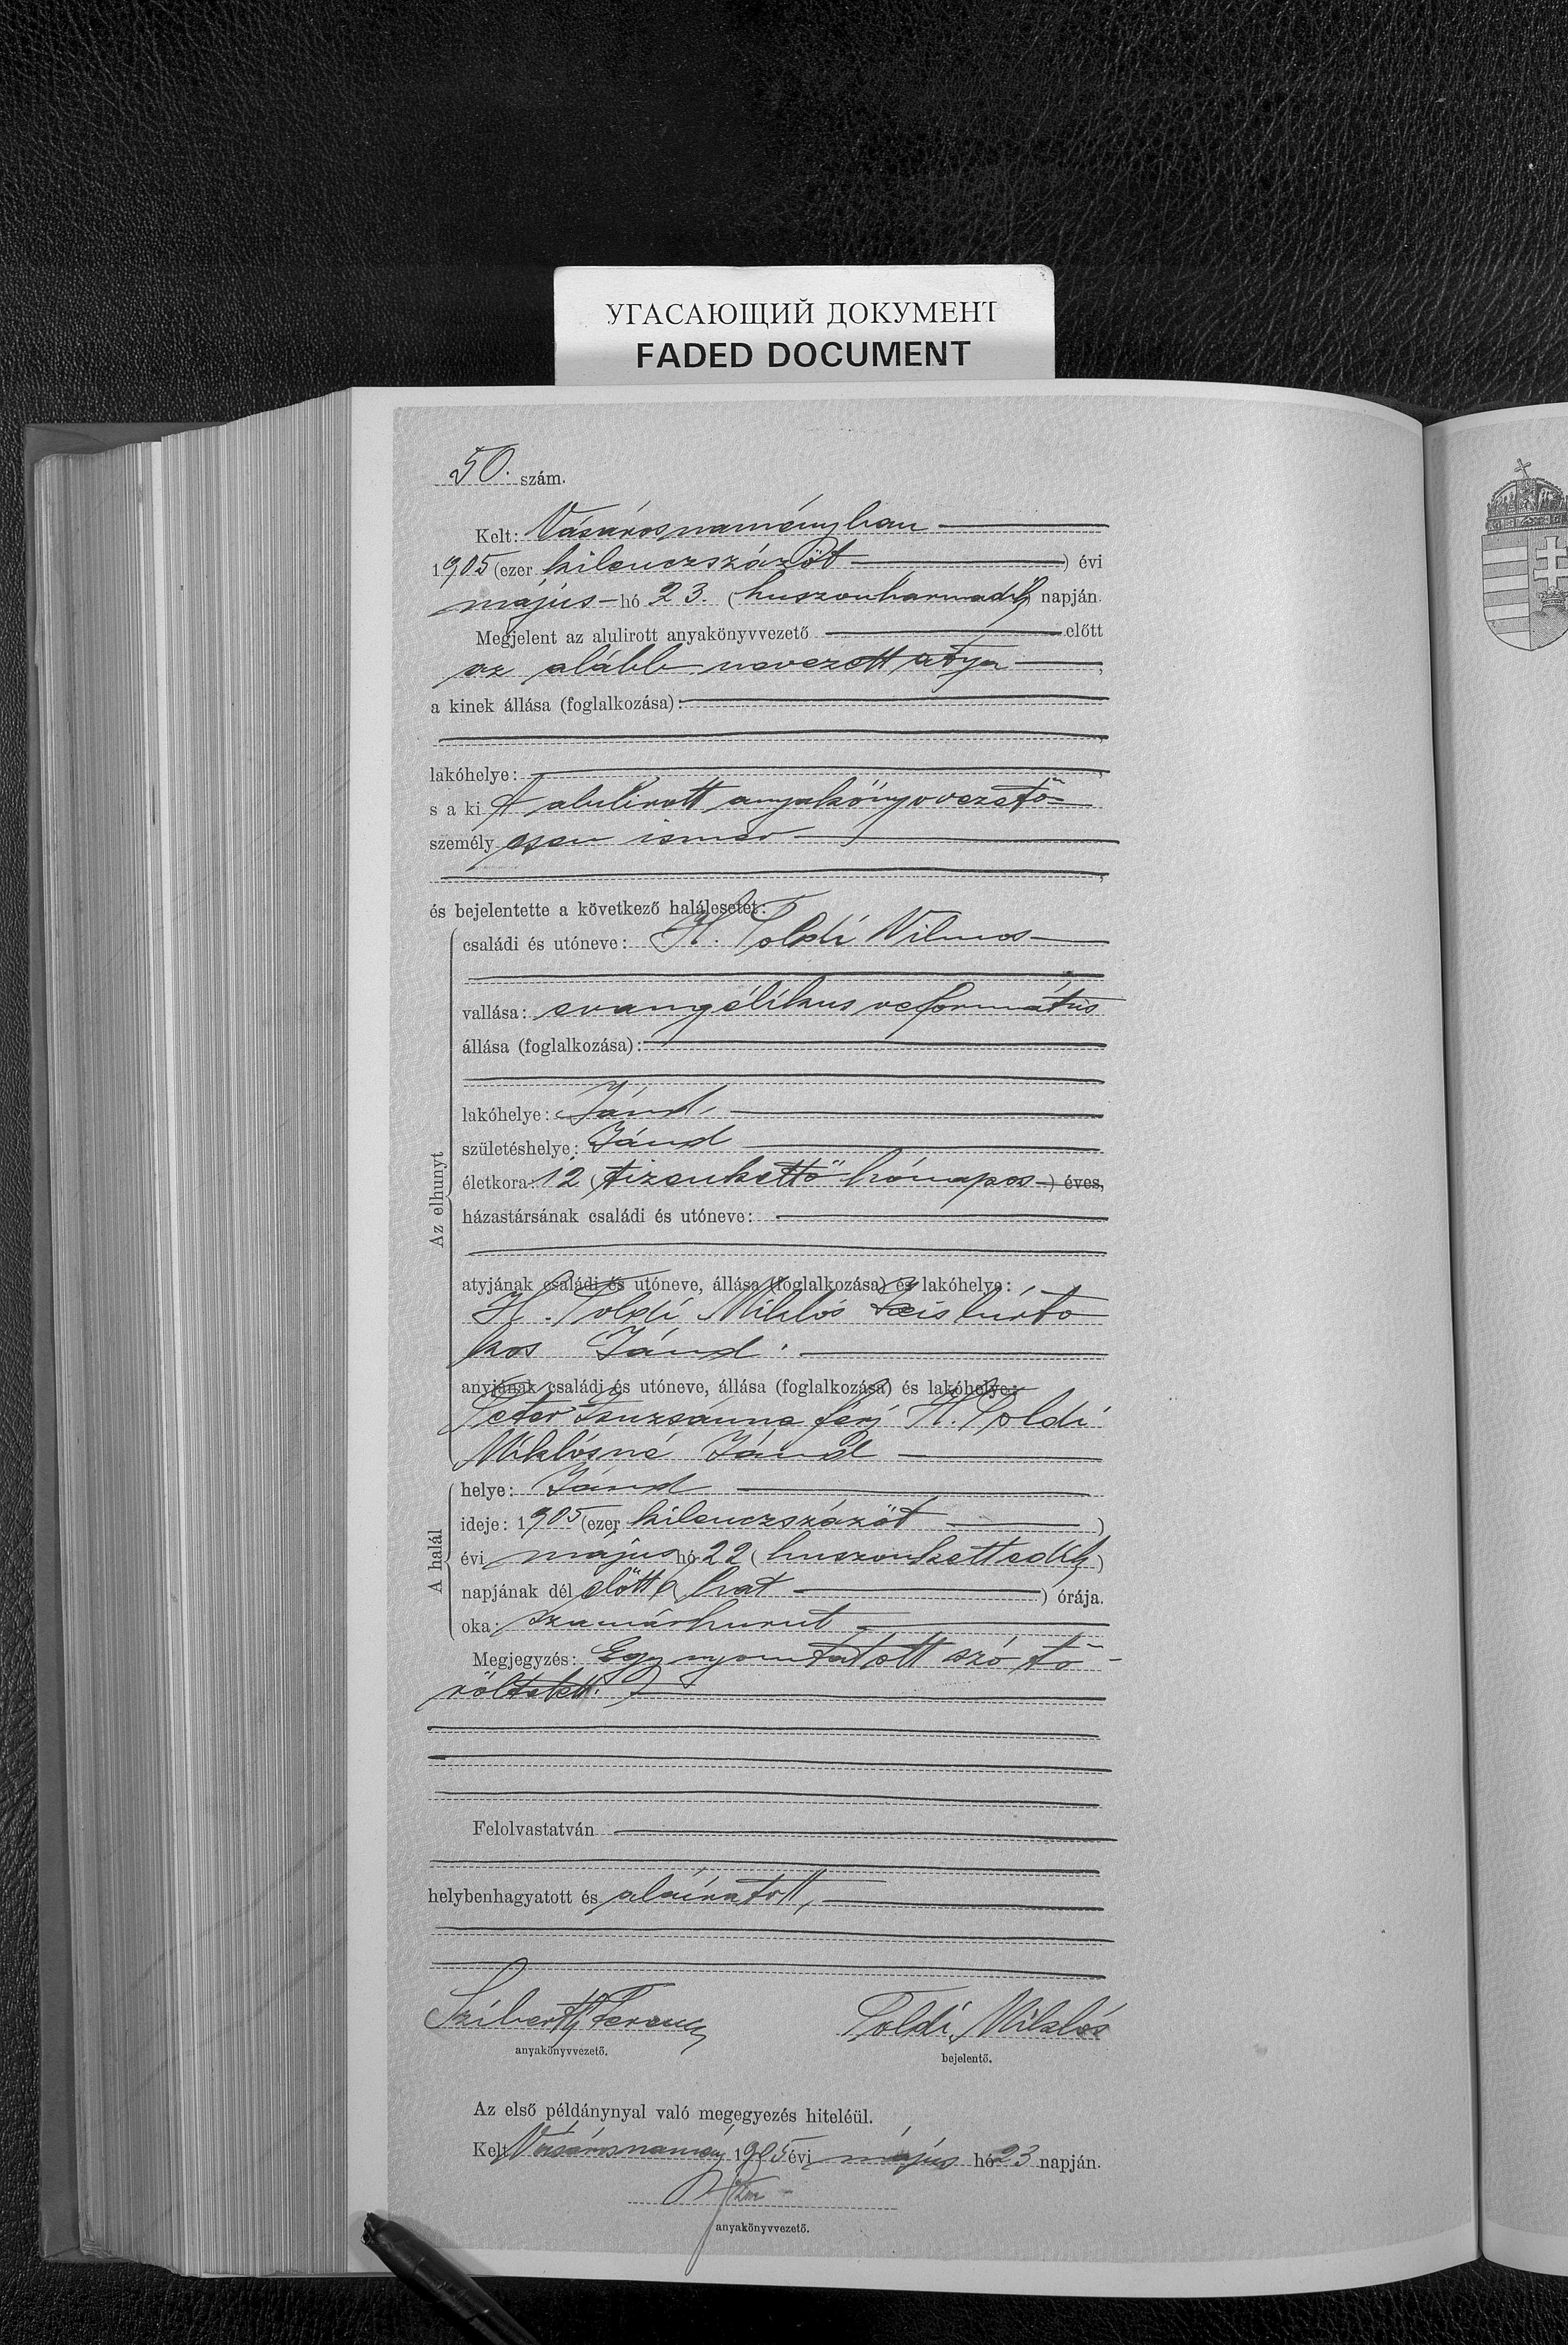 УГАСАЮЩИЙ ДОКУМЕНТ
FADED DOCUMENT
50. szám.
Kelt: Vásárosnaményban
1905 (ezer kilenczszázöt) évi
május hó 23. (huszonharmadik) napján.
Megjelent az alulirott anyakönyvvezető előtt
az alább nevezett atya,
a kinek állása (foglalkozása):
lakóhelye:
s a ki A alulirott anyakönyvvezető
személyesen ismer
és bejelentette a következő halálesetet:
Az elhunyt
családi és utóneve: H. Toldi Vilmos
vallása: evangélikus református
állása (foglalkozása):
lakóhelye: Jánd,
születéshelye: Jánd
életkora: 12 (tizenkettő hónapos) éves,
házastársának családi és utóneve:
atyjának családi és utóneve, állása (foglalkozása) és lakóhelye:
H. Toldi Miklós kisbirto
kos Jánd.
anyjának családi és utóneve, állása (foglalkozása) és lakóhelye:
Péter Zsuzsánna férj H. Toldi
Miklósné Jánd
A halál
helye: Jánd
ideje: 1905 (ezer kilenczszázöt)
évi május hó 22 (huszonkettedik)
napjának dél előtt 6 (hat) órája.
oka: szamárhurut
Megjegyzés: Egy nyomtatott szó tö-
röltetett.
Felolvastatván
helybenhagyatott és aláiratott,
Ferencz Toldi Miklós
anyakönyvvezető. bejelentő.
Az első példánynyal való megegyezés hiteléül.
Kelt Vásárosnamény 1905 évi május hó 23 napján.
anyakönyvvezető.